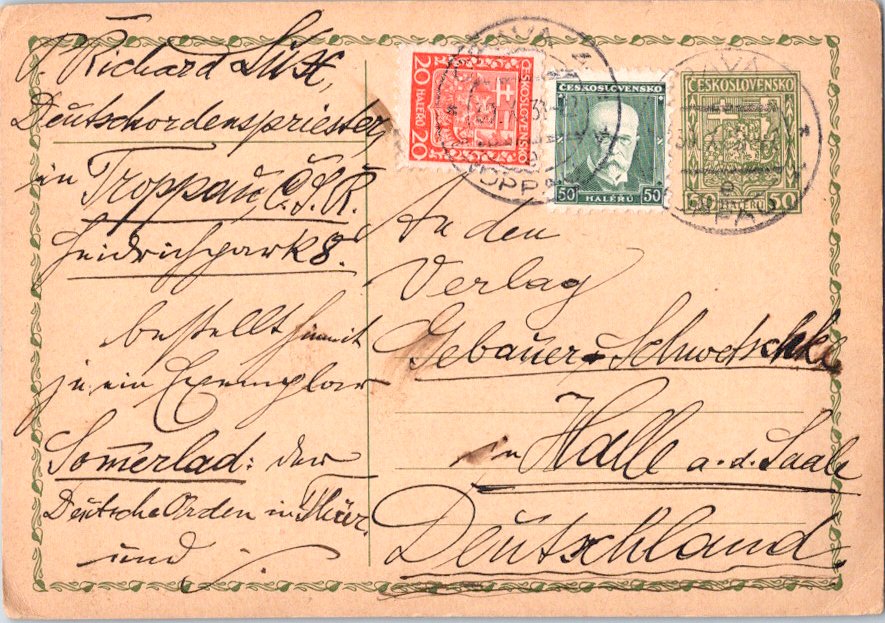 P. Richard
Deutschordenspriester,
in Troppau, Č.S.R.
Heidrichpark 8.
bestellt hiermit
je ein Exemplar
Somerlad: der
Deutsche Orden in Thür.
und
ČESKOSLOVENSKO
20 HALÉŘŮ 20
ČESKOSLOVENSKO
50 HALÉŘŮ 50
ČESKOSLOVENSKO
50 HALÉŘŮ 50
OPAVA
TROPPAU
An den
Verlag
Gebauer-Schwetschke
in Halle a.d. Saale
Deutschland